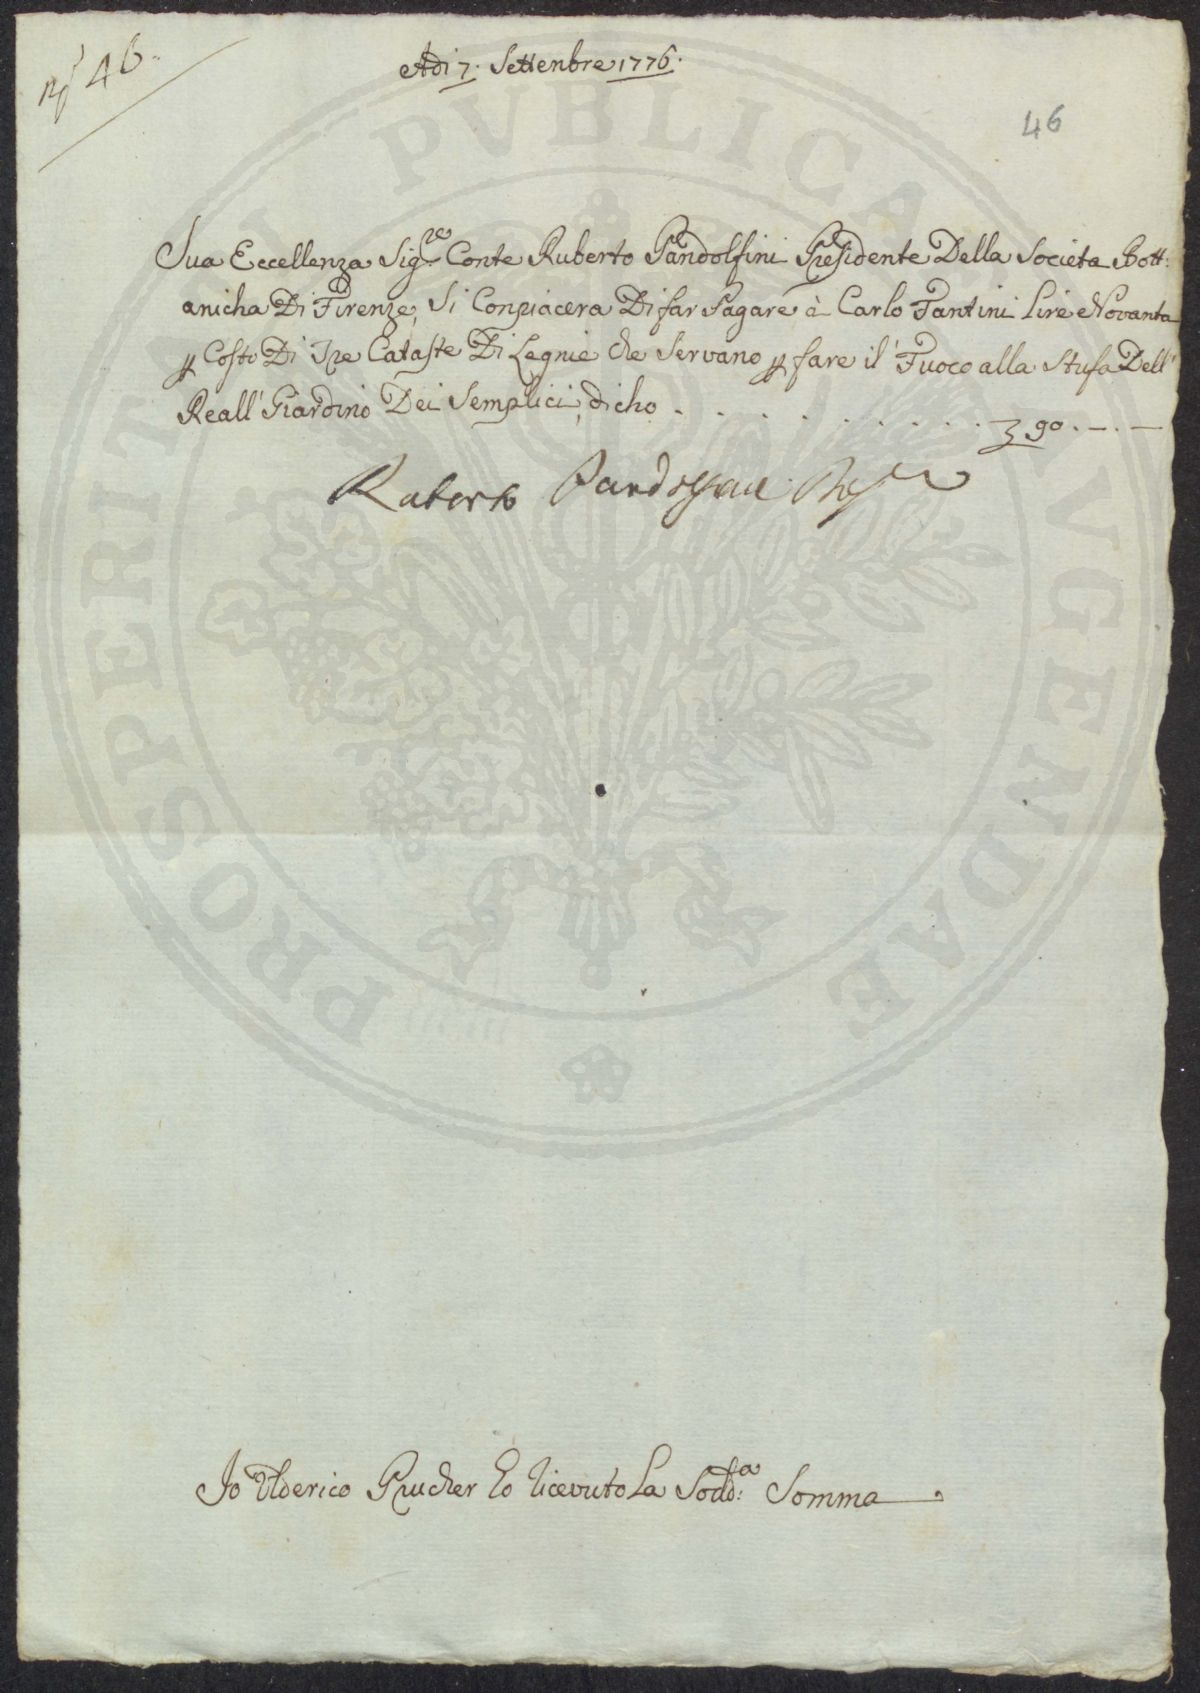 N.º 46.
Adi 7. Settenbre 1776.
46
Sua Eccellenza Sig.re Conte Ruberto Pandolfini Presidente Della Societa Bott:
anicha Di Firenze, Si Conpiacera Di far Pagare à Carlo Fantini Lire Novanta
p Costo Di Tre Cataste Di Legnie che Servano p fare il' Fuoco alla Stufa Dell'
Reall' Giardino Dei Semplici, dicho . . . . . . . . . . £ 90. — . —
Ruberto Pandolfini Pres.te
Io Ulderico Prucher ho ricevuto La Sodd:a Somma
PROSPERITATI PVBLICAE AVGENDAE